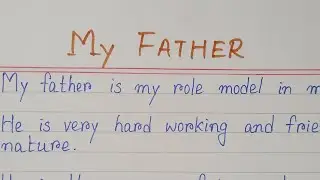 My FATHER
My father is my role model in
He is very hard working and
nature.